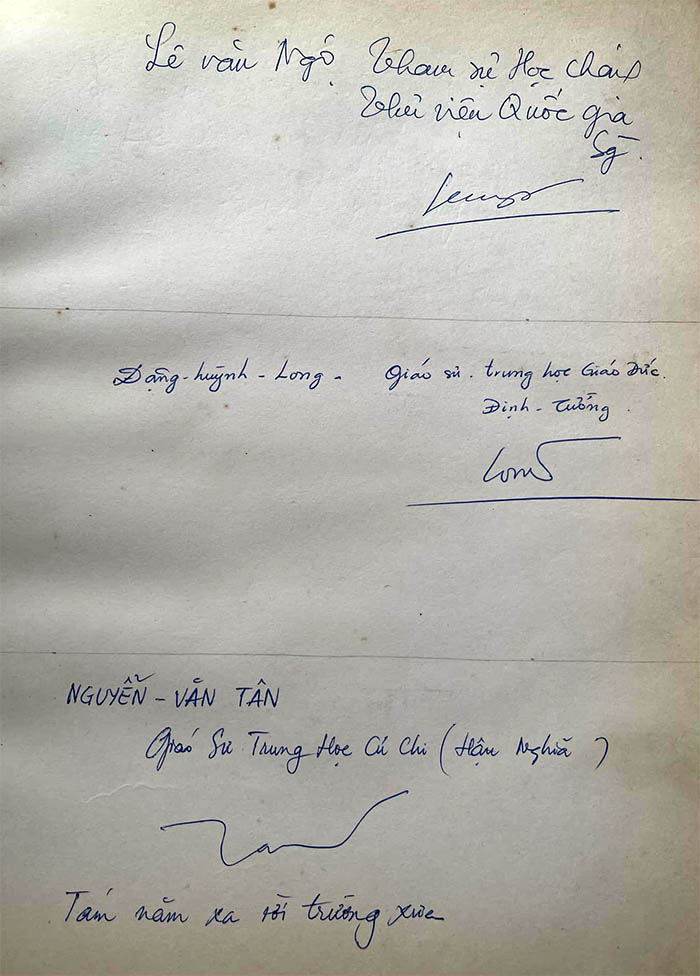 Lê văn Ngộ Tham sự Học chánh
Thư viện Quốc gia
Sg.
Đặng-huỳnh-Long- Giáo sư. trung học Giáo Đức.
Định-Tường.
Long
NGUYỄN-VĂN TÂN
Giáo Sư Trung Học Củ Chi (Hậu Nghĩa)
Tám năm xa rời trường xưa